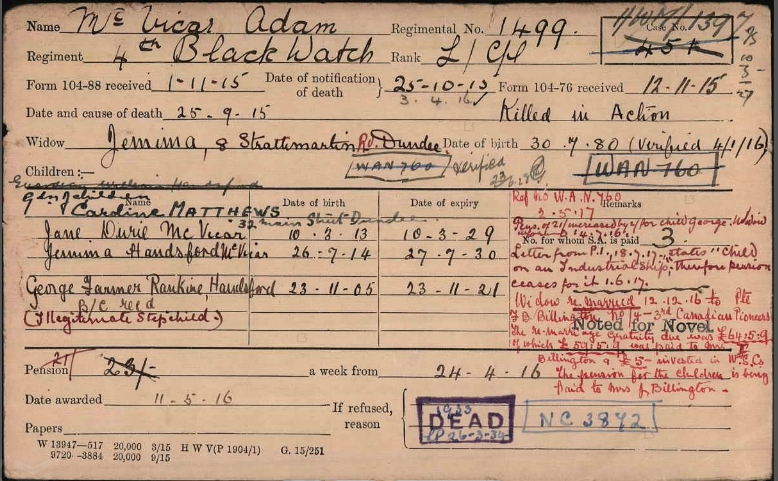 Name Mc Vicar Adam Regimental No. 1499. Case No. 451
Regiment 4th Black Watch Rank L/Cpl
Form 104-88 received 1-11-15 Date of notification of death } 25-10-15 Form 104-76 received 12-11-15
3. 4. 16
Date and cause of death 25-9-15 Killed in Action
Widow Jemima, 8 Strathmartin Rd. Dundee Date of birth 30.7.80 (Verified 4/1/16)
WAN 760 verified WAN 760
Children:—
Caroline MATTHEWS
Main Street Dundee
Name Date of birth Date of expiry Remarks
Jane Durie Mc Vicar 10.3.13 10-3-29
Jemima Handsford McVicar 26-7-14 27-7-30
George Farmer Rankine Handsford 23-11-05 23-11-21
B/C recd
(Illegitimate Stepchild)
Ref No W.A.N. 760
2.5.17
Pens. of 21/ increased for child George
No. for whom S.A. is paid 3
Letter from P.1., 18.7.17. states "Child
on an Industrial Ship," therefore pension
ceases for it 1.6.17.
Widow re married 12.12.16 to Pte
Billington 3rd Canadian Pioneers
Noted for Novel.
The re-marriage gratuity due was
of which was paid to Mrs
Billington & £5- invested in W.S.Cs
The pension for the children is being
paid to Mrs J. Billington.
Pension 21/ 23/- a week from 24-4-16
Date awarded 11-5-16 If refused, reason
DEAD NC 3872
1933
26-3-34
Papers
W 13947—517 20,000 3/15 H W V(P 1904/1) G. 15/251
9720-3884 20,000 9/15